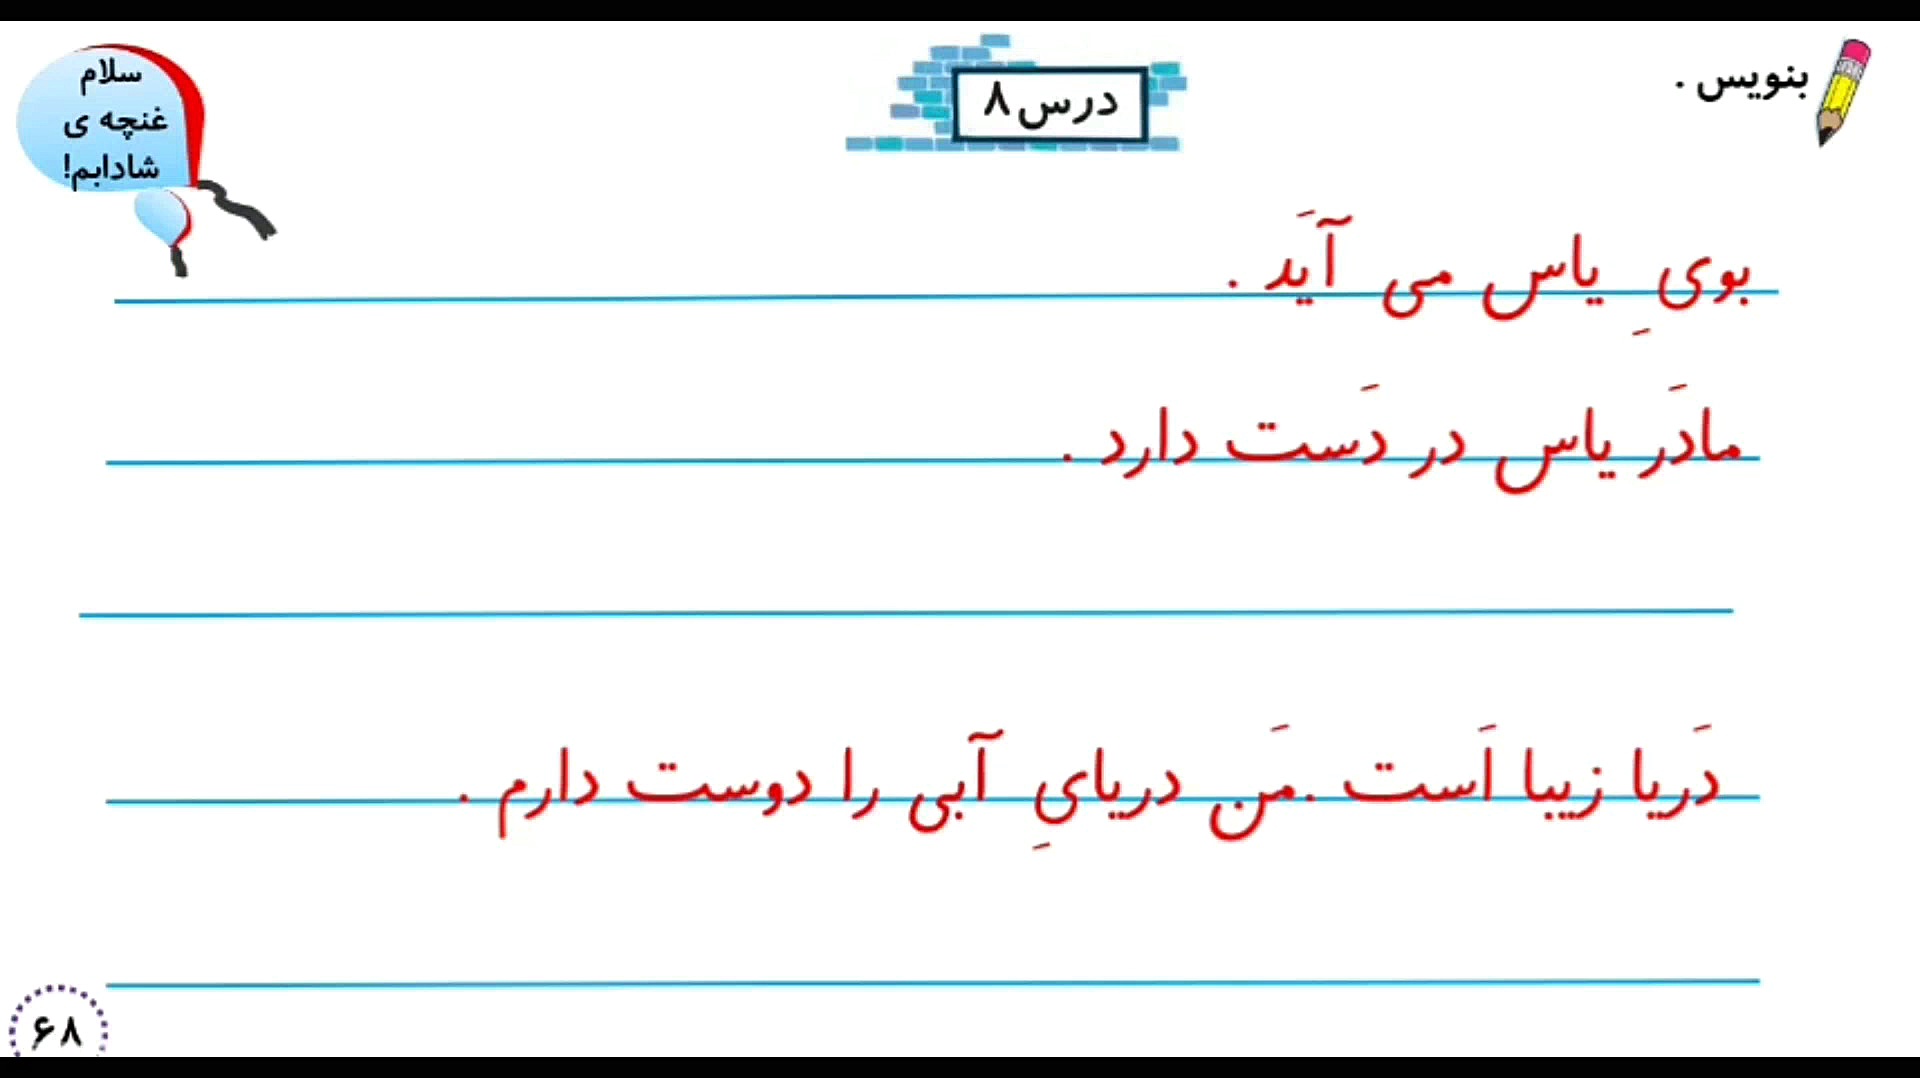 بنویس .
درس ۸
سلام
غنچه ی
شادابم!
بویِ یاس می آیَد .
مادَر یاس در دَست دارد .
دَریا زیبا اَست .مَن دریایِ آبی را دوست دارم .
۶۸